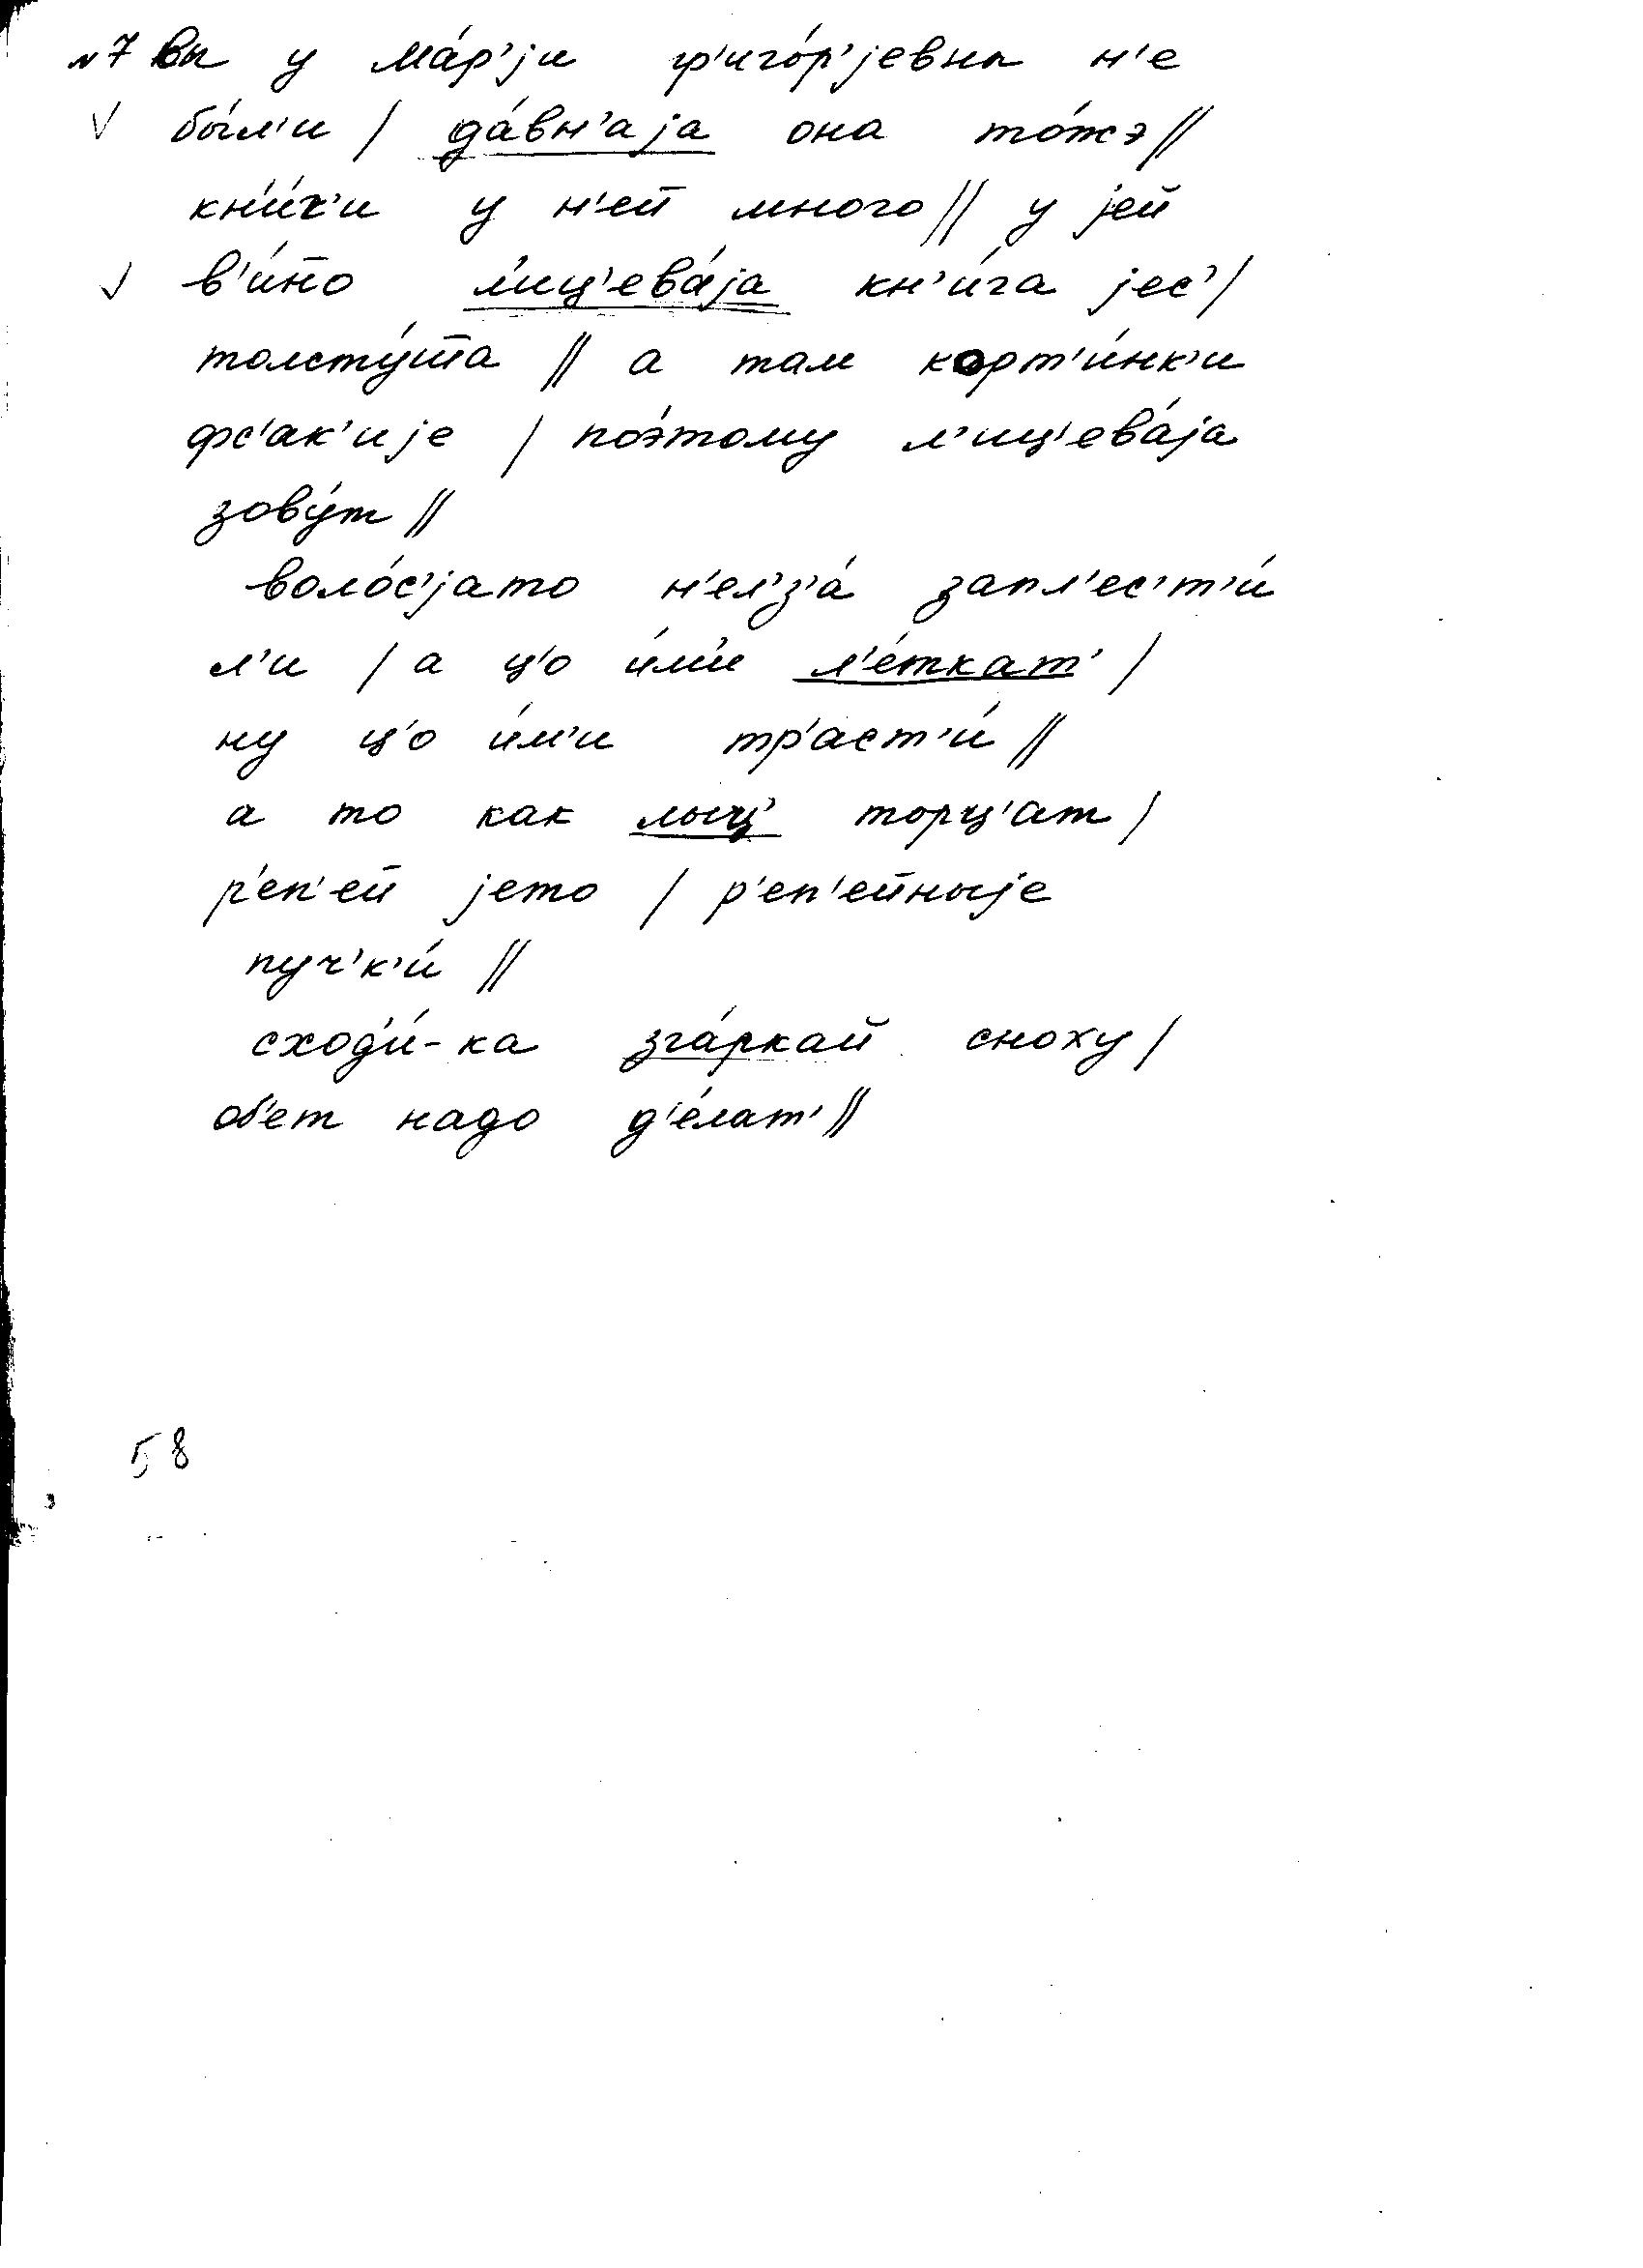 №7 вы у ма́р'jи гр'иго́р'jевны н'е
√ бы́л'и / да́вн'аjа она то́жэ //
кн'и́г'и у н'ей много // у jей
√ в'и́но л'иц'ева́jа кн'и́га jес' /
толсту́ша // а там карт'и́нк'и
фс'ак'иjе / поэ́тому л'иц'ева́jа
зову́т //
воло́с'jато н'ел'з'а́ запл'ес'т'и́
л'и / а ц'о и́м'и л'е́ткат' /
ну ц'о и́м'и тр'аст'и́ //
а то как лыц' торц'ат /
р'еп'ей jето / р'еп'ейныjе
пуч'к'и́ //
сход'и́-ка зга́ркай сноху /
об'ет надо д'е́лат' //
58